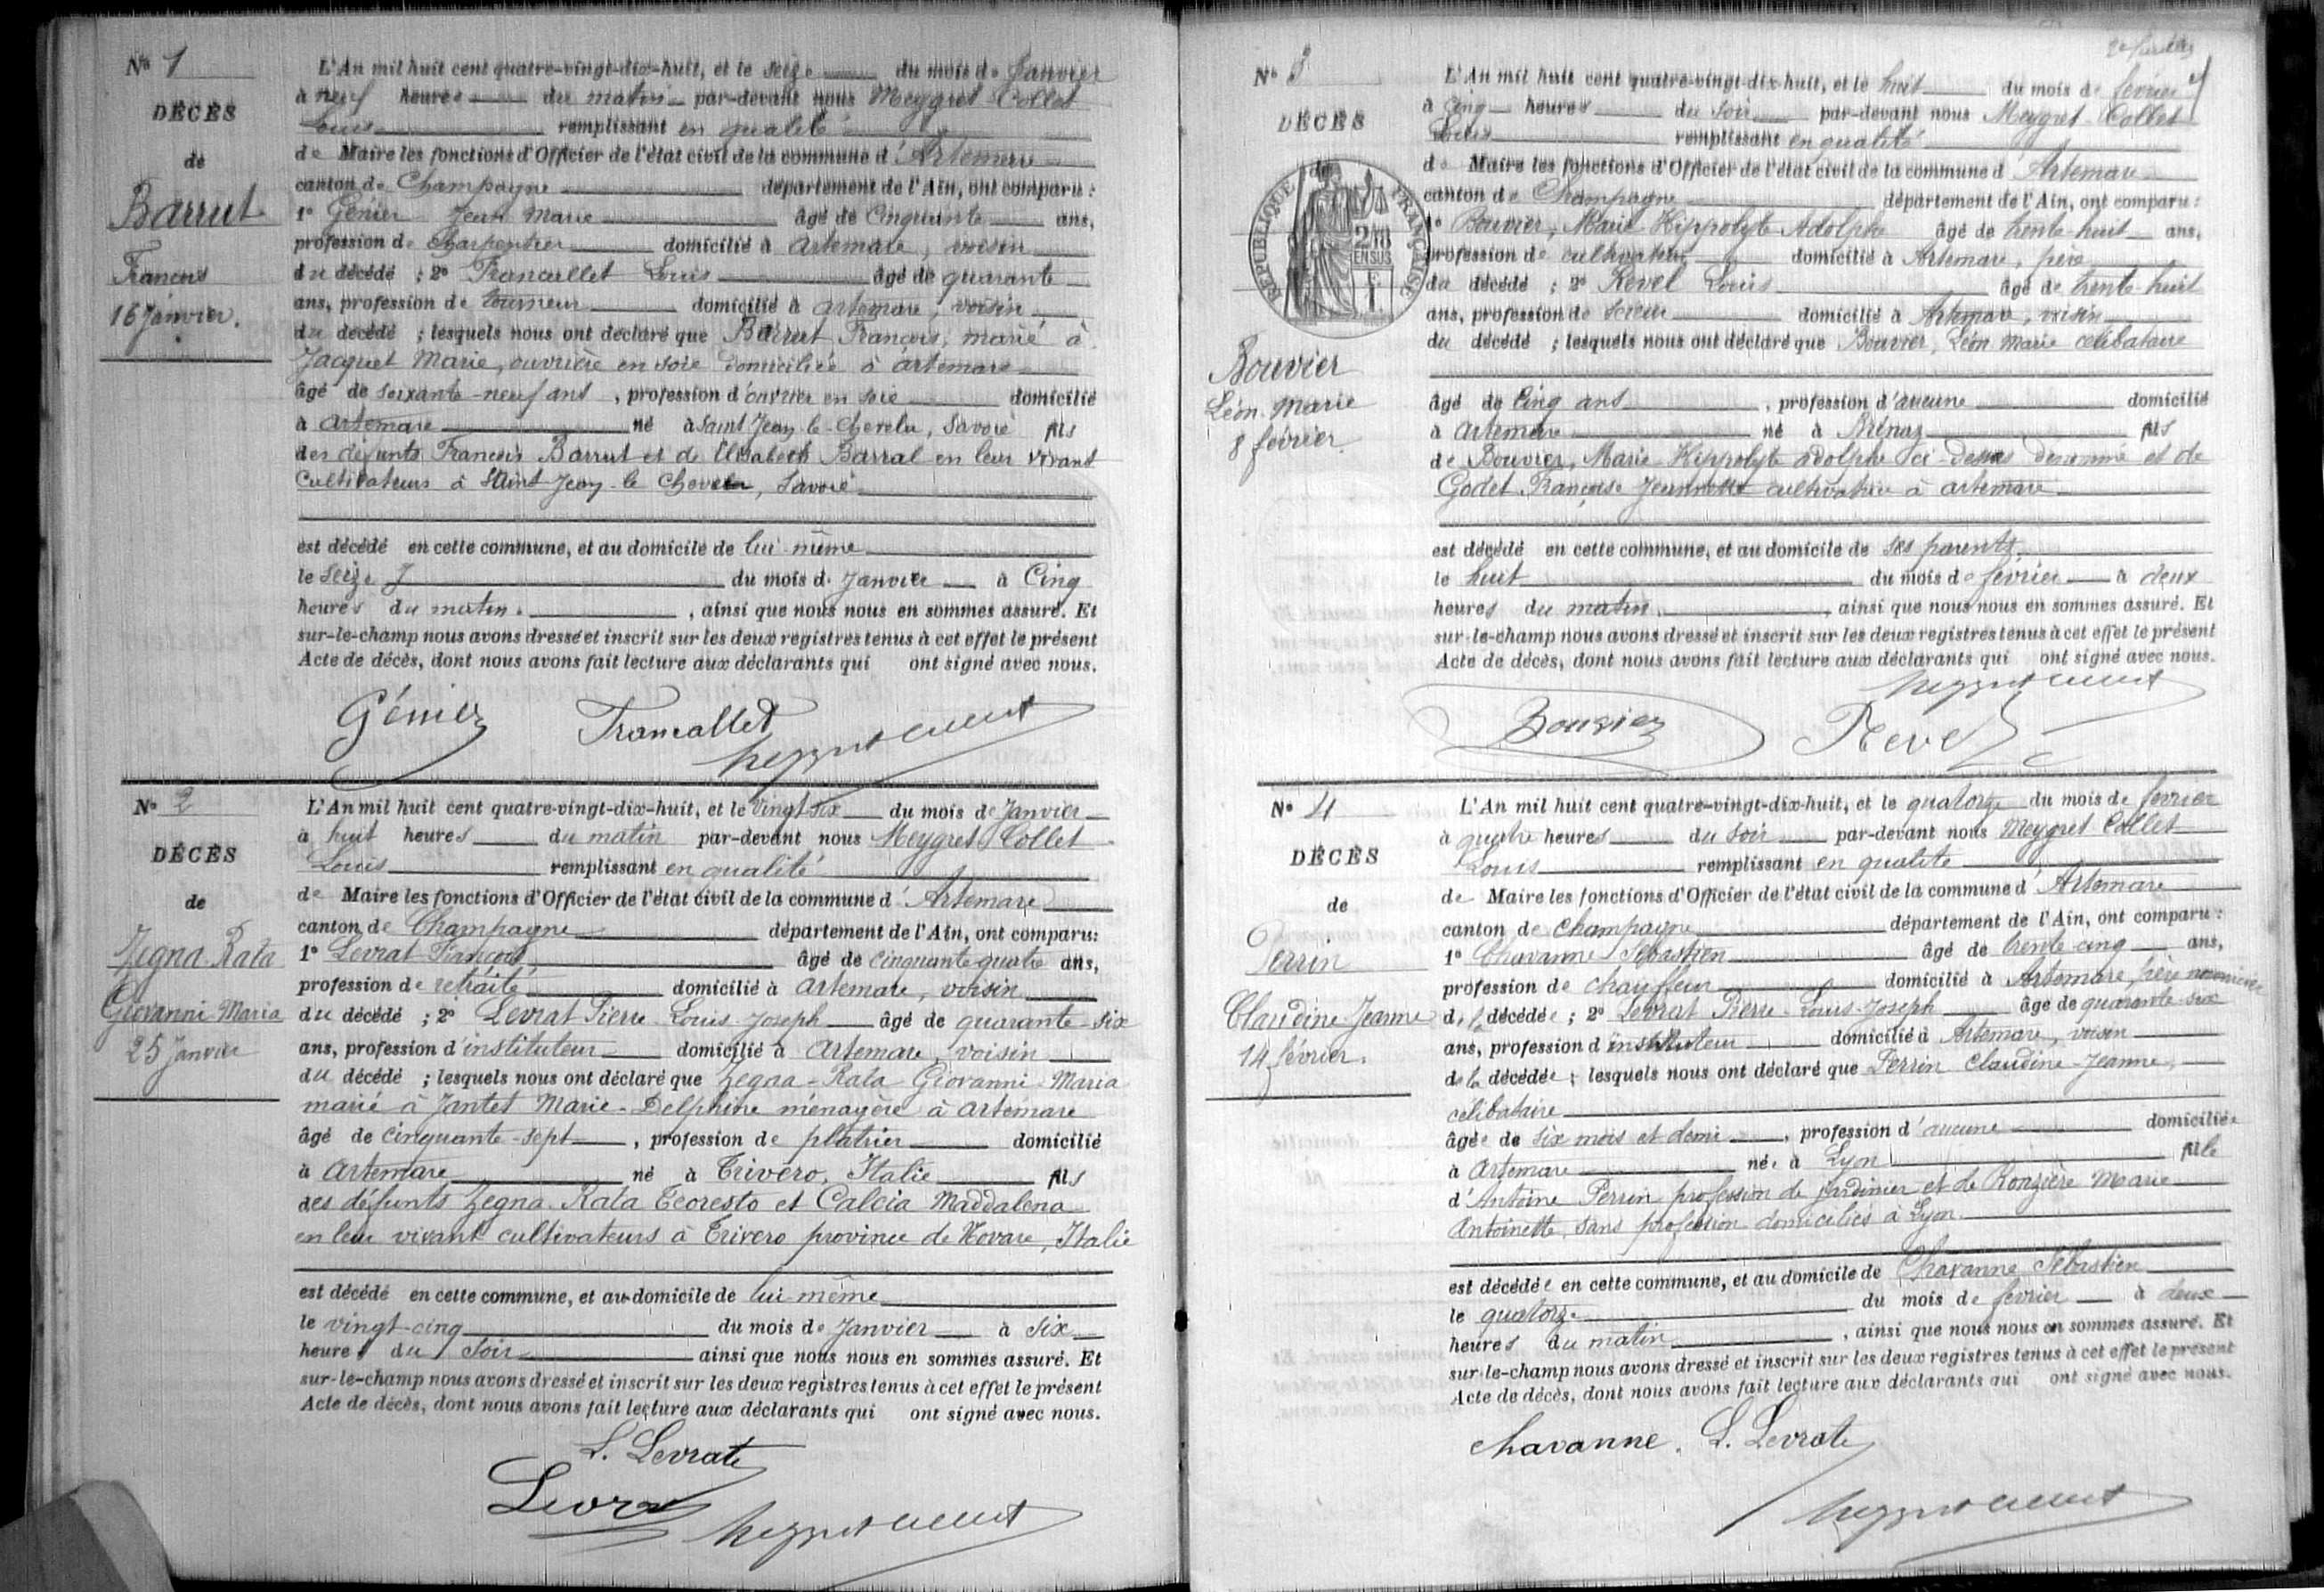 Nº 1
DÉCÈS
de
Barrut
Francois
16 Janvier.
L'An mil huit cent quatre-vingt-dix-huit, et le seize du mois de Janvier
à neuf heures du matin par-devant nous Meygret Collet
Louis remplissant en qualité
de Maire les fonctions d'Officier de l'état civil de la commune d'Artemare
canton de Champagne département de l'Ain, ont comparu :
1º Génier Jean Marie âgé de Cinquante ans,
profession de charpentier domicilié à artemare, voisin
du décédé ; 2º Francallet Louis âgé de quarante
ans, profession de tourneur domicilié à artemare, voisin
du décédé ; lesquels nous ont déclaré que Barrut François, marié à
Jacquet Marie, ouvrière en soie domiciliée à artemare
âgé de soixante-neuf ans, profession d'ouvrier en soie domicilié
à artemare né à Saint Jean-le-Chevelu, Savoie fils
des défunts Francois Barrut et de Elisabeth Barral en leur vivant
Cultivateurs à Saint Jean-le Chevelu, Savoie
est décédé en cette commune, et au domicile de lui-même
le seize du mois de Janvier à Cinq
heures du matin, ainsi que nous nous en sommes assuré. Et
sur-le-champ nous avons dressé et inscrit sur les deux registres tenus à cet effet le présent
Acte de décès, dont nous avons fait lecture aux déclarants qui ont signé avec nous.
Génier Francallet
Nº 2
DÉCÈS
de
Zegna-Rata
Giovanni-Maria
25 Janvier
L'An mil huit cent quatre-vingt-dix-huit, et le Vingt-six du mois de Janvier
à huit heures du matin par-devant nous Meygret Collet
Louis remplissant en qualité
de Maire les fonctions d'Officier de l'état civil de la commune d'Artemare
canton de Champagne département de l'Ain, ont comparu:
1º Levrat François âgé de cinquante quatre ans,
profession de retraité domicilié à artemare, voisin
du décédé ; 2º Levrat Pierre-Louis-Joseph âgé de quarante-six
ans, profession d'instituteur domicilié à Artemare, voisin
du décédé ; lesquels nous ont déclaré que Zegna-Rata Giovanni-Maria
marié à Jantet Marie-Delphine ménagère à artemare
âgé de cinquante-sept, profession de plâtrier domicilié
à artemare né à Trivero, Italie fils
des défunts Zegna-Rata Teoresto et Calcia Maddalena
en leur vivant cultivateurs à Trivero province de Novare, Italie
est décédé en cette commune, et au domicile de lui-même
le vingt-cinq du mois de Janvier à six
heures du soir ainsi que nous nous en sommes assuré. Et
sur-le-champ nous avons dressé et inscrit sur les deux registres tenus à cet effet le présent
Acte de décès, dont nous avons fait lecture aux déclarants qui ont signé avec nous.
L. Levrat
Levrat
Nº 3
DÉCÈS
de
RÉPUBLIQUE FRANÇAISE
Bouvier
Léon-Marie
8 février
L'An mil huit cent quatre-vingt-dix-huit, et le huit du mois de février
à cinq heures du soir par-devant nous Meygret-Collet
Louis remplissant en qualité
de Maire les fonctions d'Officier de l'état civil de la commune d'Artemare
canton de Champagne département de l'Ain, ont comparu :
1º Bouvier, Marie Hippolyte Adolphe âgé de trente-huit ans,
profession de cultivateur domicilié à Artemare, père
du décédé ; 2º Revel Louis âgé de trente-huit
ans, profession de scieur domicilié à Artemare, voisin
du décédé ; lesquels nous ont déclaré que Bouvier, Léon Marie célibataire
âgé de Cinq ans, profession d'aucune domicilié
à artemare né à Brénaz fils
de Bouvier, Marie-Hippolyte adolphe ci-dessus dénommé et de
Godet Françoise Jeannette cultivatrice à artemare
est décédé en cette commune, et au domicile de ses parents
le huit du mois de février à deux
heures du matin, ainsi que nous nous en sommes assuré. Et
sur-le-champ nous avons dressé et inscrit sur les deux registres tenus à cet effet le présent
Acte de décès, dont nous avons fait lecture aux déclarants qui ont signé avec nous.
Bouvier Revel
Nº 4
DÉCÈS
de
Perrin
Claudine-Jeanne
14 février.
L'An mil huit cent quatre-vingt-dix-huit, et le quatorze du mois de février
à quatre heures du soir par-devant nous Meygret Collet
Louis remplissant en qualité
de Maire les fonctions d'Officier de l'état civil de la commune d'Artemare
canton de Champagne département de l'Ain, ont comparu :
1º Chavanne Sébastien âgé de trente-cinq ans,
profession de chauffeur domicilié à Artemare, père nourricier
de la décédée ; 2º Levrat Pierre-Louis-Joseph âgé de quarante-six
ans, profession d'instituteur domicilié à Artemare, voisin
de la décédée ; lesquels nous ont déclaré que Perrin Claudine-Jeanne,
célibataire
âgée de six mois et demi, profession d'aucune domiciliée
à artemare née à Lyon fille
d'Antoine Perrin profession de jardinier et de Ronzière Marie
Antoinette, sans profession domiciliés à Lyon.
est décédée en cette commune, et au domicile de Chavanne Sébastien
le quatorze du mois de février à deux
heures du matin, ainsi que nous nous en sommes assuré. Et
sur-le-champ nous avons dressé et inscrit sur les deux registres tenus à cet effet le présent
Acte de décès, dont nous avons fait lecture aux déclarants qui ont signé avec nous.
Chavanne. L. Levrat